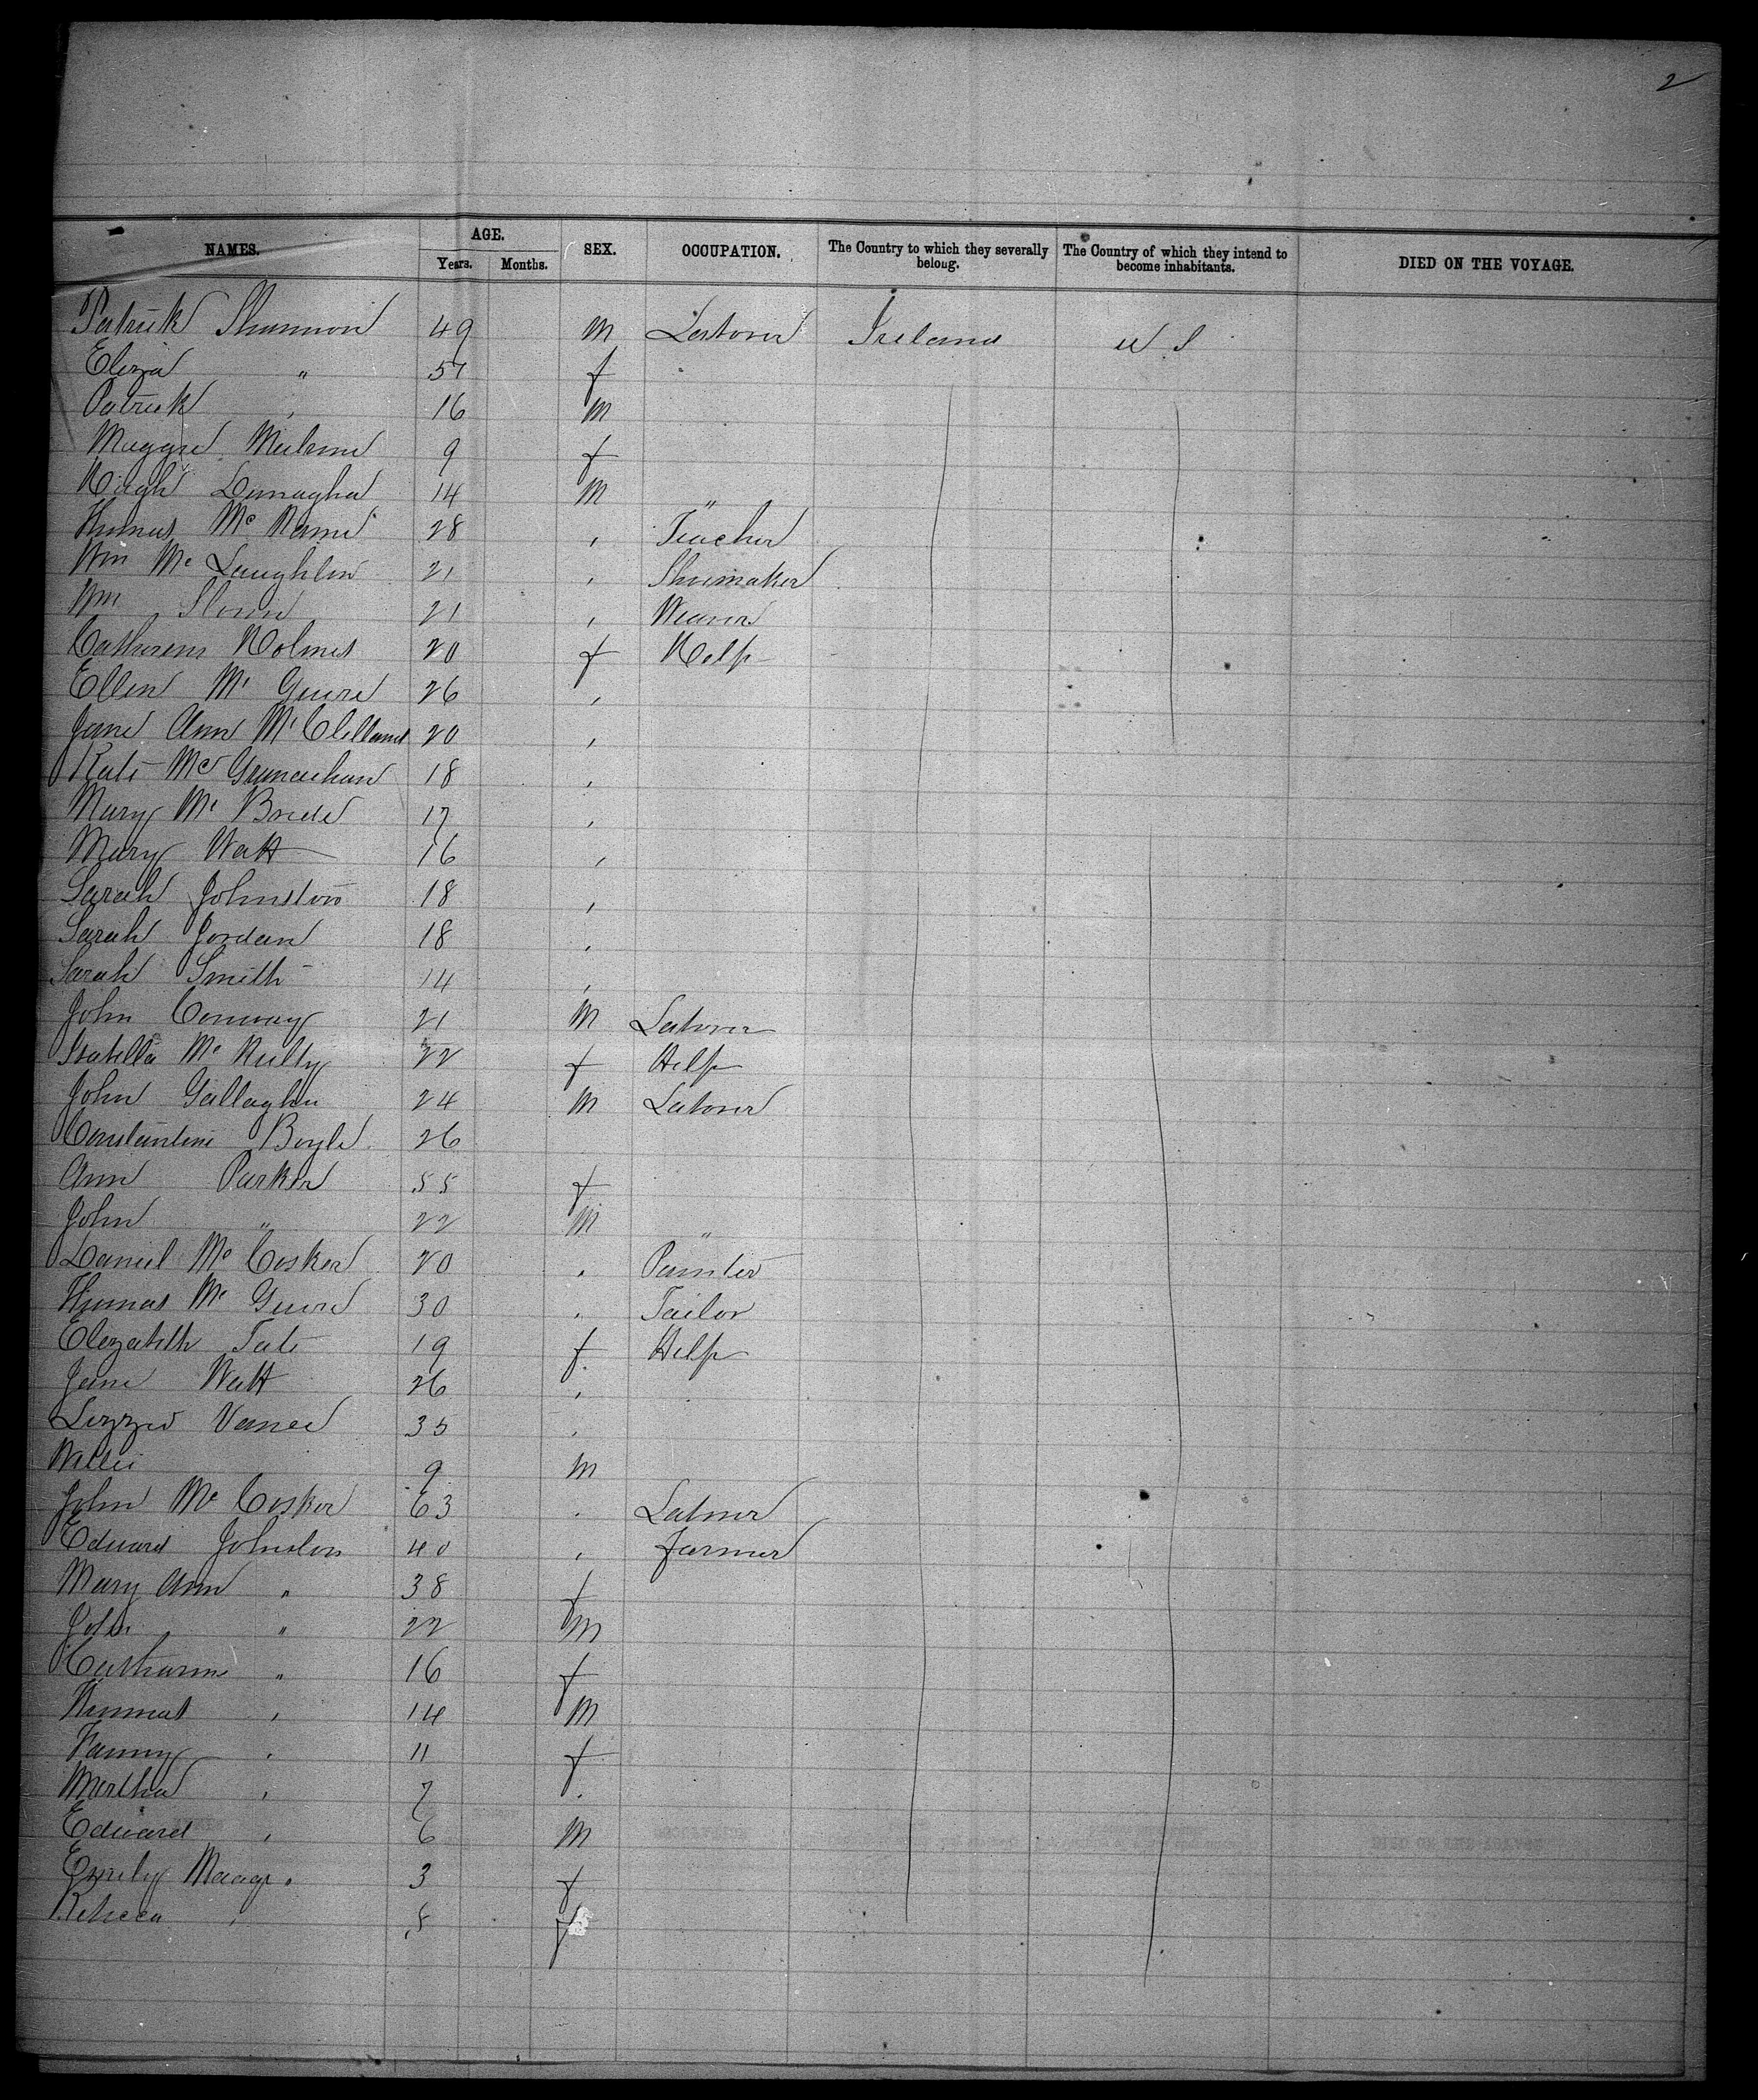 2
NAMES. AGE. SEX. OCCUPATION. The Country to which they severally belong. The Country of which they intend to become inhabitants. DIED ON THE VOYAGE.
Years. Months.
Patrick Shannon 49 M Laborer Ireland U S
Eliza " 51 f
Patrick " 16 M
Maggie 9 f
Hugh 14 M "
Thomas Mc 28 , Teacher
Wm Mc Laughlin 21 , Shoemaker
Wm 21 , Weaver
Catharine Holmes 20 f Help
Ellen Mc Guire 26 ,
Jane Ann Mc Clelland 20 ,
Kate Mc Granachan 18 ,
Mary Mc Bride 17 ,
Mary Watt 16 ,
Sarah Johnston 18 ,
Sarah Jordan 18 ,
Sarah Smith 14 ,
John Conway 21 M Laborer
Isabella Mc 22 f Help
John Gallagher 24 M Laborer
Constantine Boyle 26
Ann Parker 55 f
John " 22 M "
Daniel Mc Cosker 20 , Painter
Thomas Mc Guire 30 , Tailor
Elizabeth Tate 19 f. Help
Jane Watt 26 ,
Lizzie Vance 35 ,
Willie 9 M
John Mc Cosker 63 . Laborer
Edward Johnston 40 , Farmer
Mary Ann " 38 f
John " 22 M
Catharine " 16 f
Thomas , 14 M
Fanny , 11 f
Martha , 7 ,
Edward , 6 M
Emily , 3 f
Rebecca , 8 f